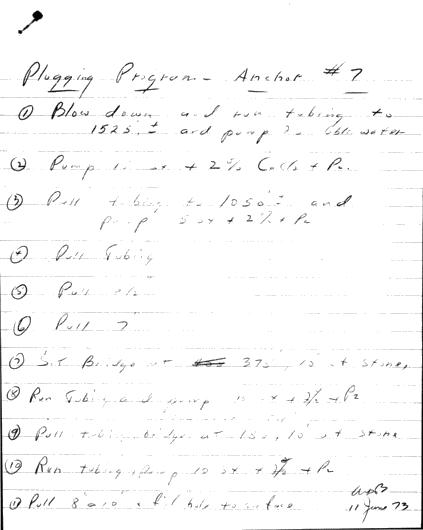 Plugging Program - Anchor # 7
① Blow down and run tubing to
1525' ± and pump bbls water
② Pump sx + 2% Cacl2 + P2.
③ Pull tubing to 1050' ± and
pump 50 sx + 2% + P2
④ Pull Tubing
⑤ Pull
⑥ Pull 7
⑦ Set Bridge at 375', 10' of stone,
⑧ Run Tubing and pump 10 sx + 3% + P2
⑨ Pull tubing bridge at 150, 10' of stone
⑩ Run tubing & pump 10 sx + 3% + P2
⑪ Pull 8" & 10" & fill hole to surface
11 June 73